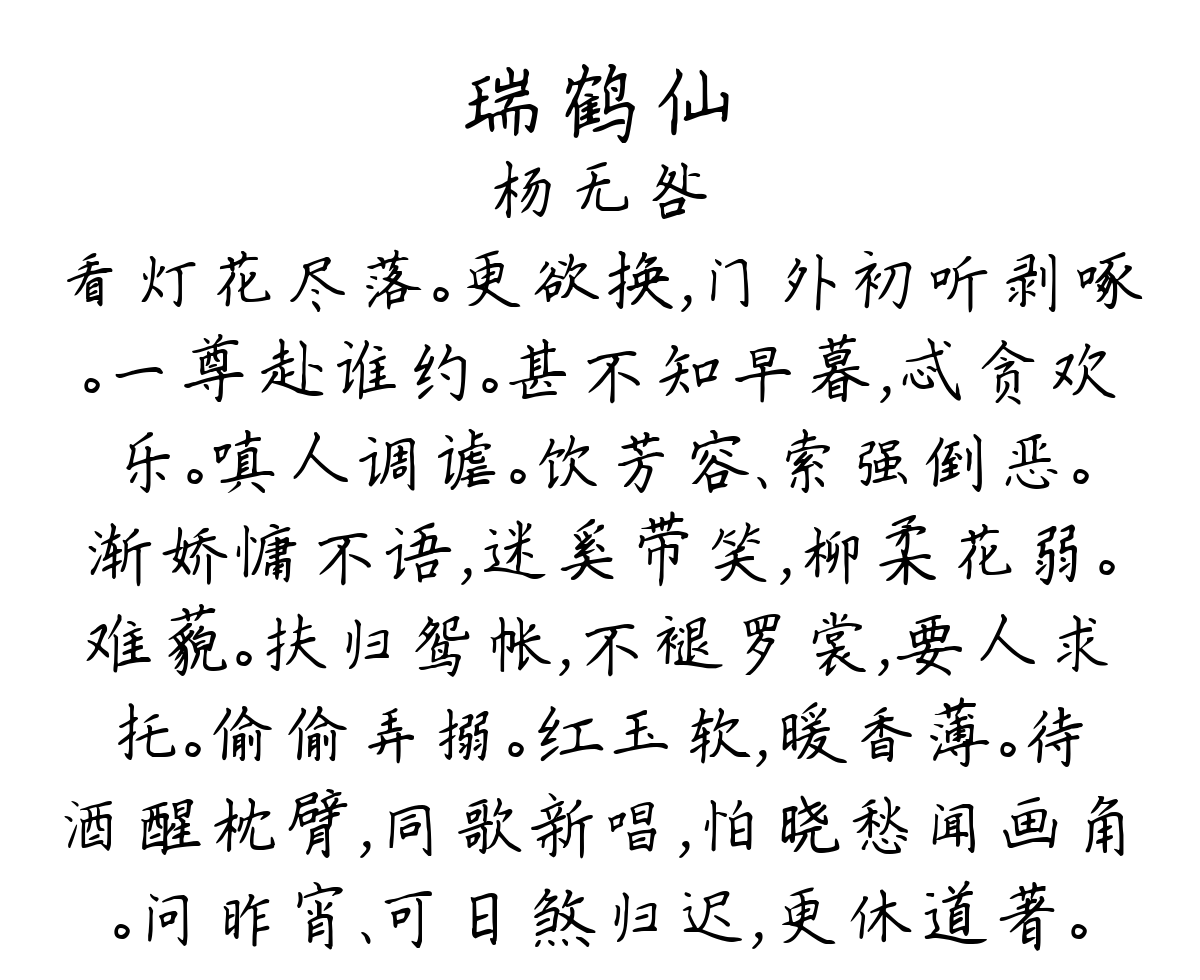 瑞鹤仙
杨无咎
看灯花尽落。更欲换,门外初听剥啄
。一尊赴谁约。甚不知早暮,忒贪欢
乐。嗔人调谑。饮芳容、索强倒恶。
渐娇慵不语,迷奚带笑,柳柔花弱。
难藐。扶归鸳帐,不褪罗裳,要人求
托。偷偷弄搦。红玉软,暖香薄。待
酒醒枕臂,同歌新唱,怕晓愁闻画角
。问昨宵、可日煞归迟,更休道著。